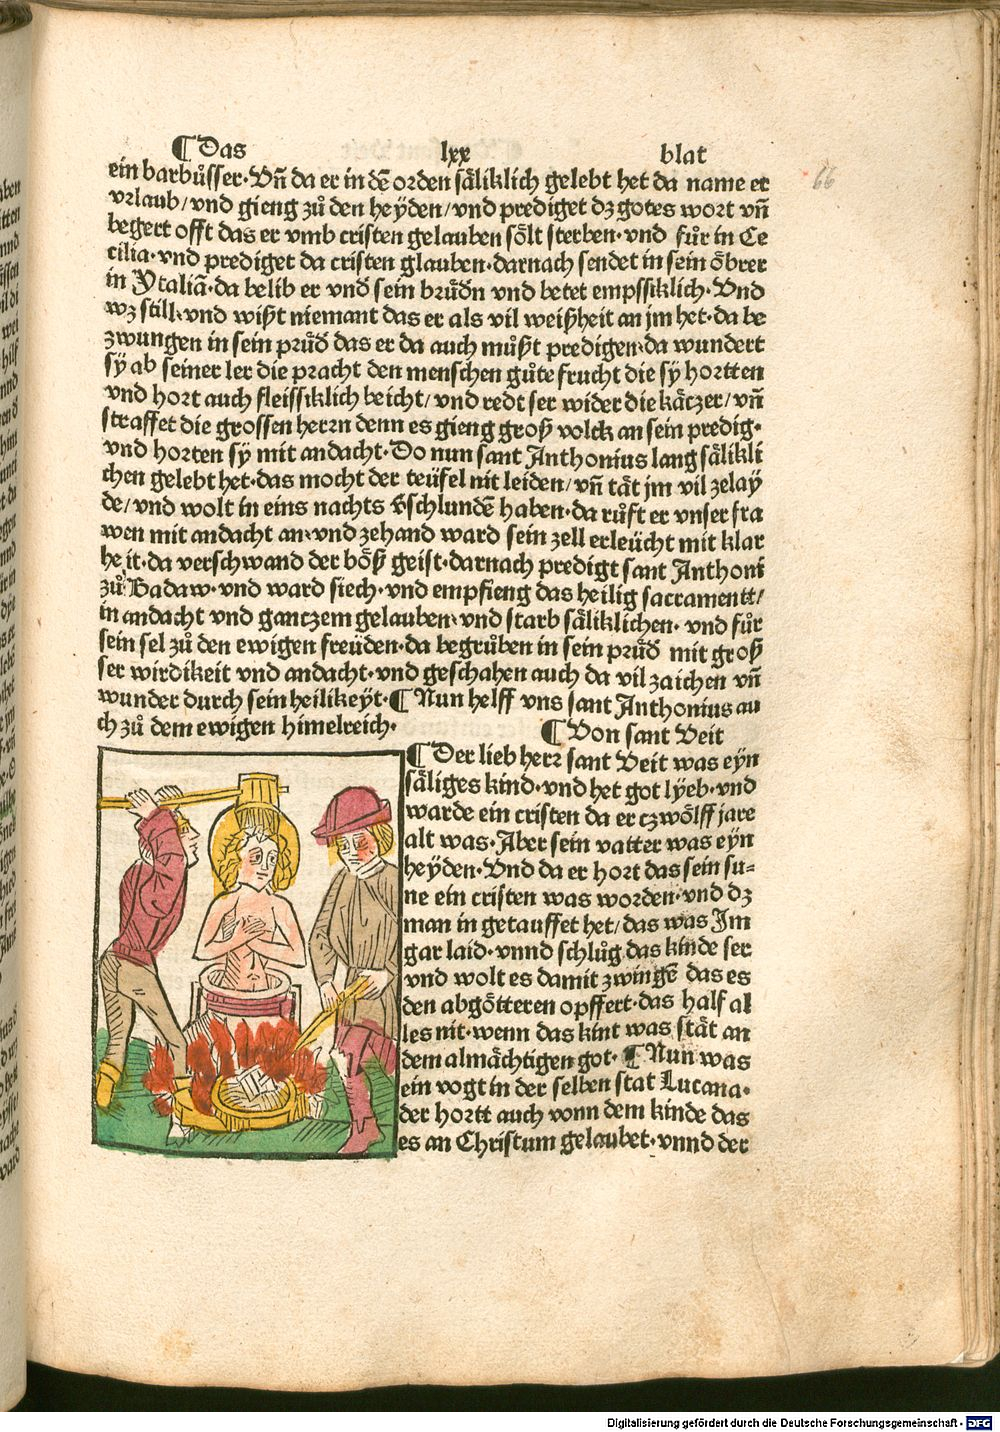 ¶ Das lxx blat
66
ein barbůsser· Vñ da er in dē orden sa̋liklich gelebt het da name er
vrlaub/ vnd gieng zů den heÿden/ vnd prediget dz gotes wort vñ
begert offt das er vmb cristen gelauben sőlt sterben· vnd fůr in Ce
cilia· vnd prediget da cristen glauben· darnach sendet in sein őbrer
in Ytaliā· da belib er vnd sein brůdn vnd betet empssiklich· Vnd
wz still· vnd wißt niemant das er als vil weißheit an jm het· da be
zwungen in sein průd das er da auch můßt predigen· da wundert
sÿ ab seiner ler die pracht den menschen gůte frucht die sÿ hortten
vnd hort auch fleissiklich beicht/ vnd redt ser wider die ka̋czer/ vñ
straffet die grossen herrn denn es gieng groß volck an sein predig·
vnd horten sÿ mit andacht· Do nun sant Anthonius lang sa̋likli
chen gelebt het· das mocht der teüfel nit leiden/ vñ ta̋t jm vil zelaÿ
de/ vnd wolt in eins nachts vschlundē haben· da růft er vnser fra
wen mit andacht an· vnd zehand ward sein zell erleücht mit klar
he it· da verschwand der bőß geist· darnach predigt sant Anthoni
zů Badaw· vnd ward siech· vnd empfieng das heilig sacramentt/
in andacht vnd ganczem gelauben· vnd starb sa̋liklichen· vnd fůr
sein sel zů den ewigen freüden· da begrůben in sein průd mit groß
ser wirdikeit vnd andacht· vnd geschahen auch da vil zaichen vñ
wunder durch sein heilikeÿt· ¶ Nun helff vns sant Anthonius au
ch zů dem ewigen himelreich·
¶ Von sant Veit
¶ Der lieb herr sant Veit was eÿn
sa̋liges kind· vnd het got lÿeb· vnd
warde ein cristen da er czwőlff jare
alt was· Aber sein vatter was eÿn
heÿden· Vnd da er hort das sein su=
ne ein cristen was worden· vnd dz
man in getauffet het/ das was Im
gar laid· vnnd schlůg das kinde ser
vnd wolt es damit zwingē das es
den abgőtteren opffert· das half al
les nit· wenn das kint was sta̋t an
dem alma̋chtigen got· ¶ Nun was
ein vogt in der selben stat Lucana·
der hortt auch vonn dem kinde das
es an Christum gelaubet· vnnd der
Digitalisierung gefördert durch die Deutsche Forschungsgemeinschaft - DFG